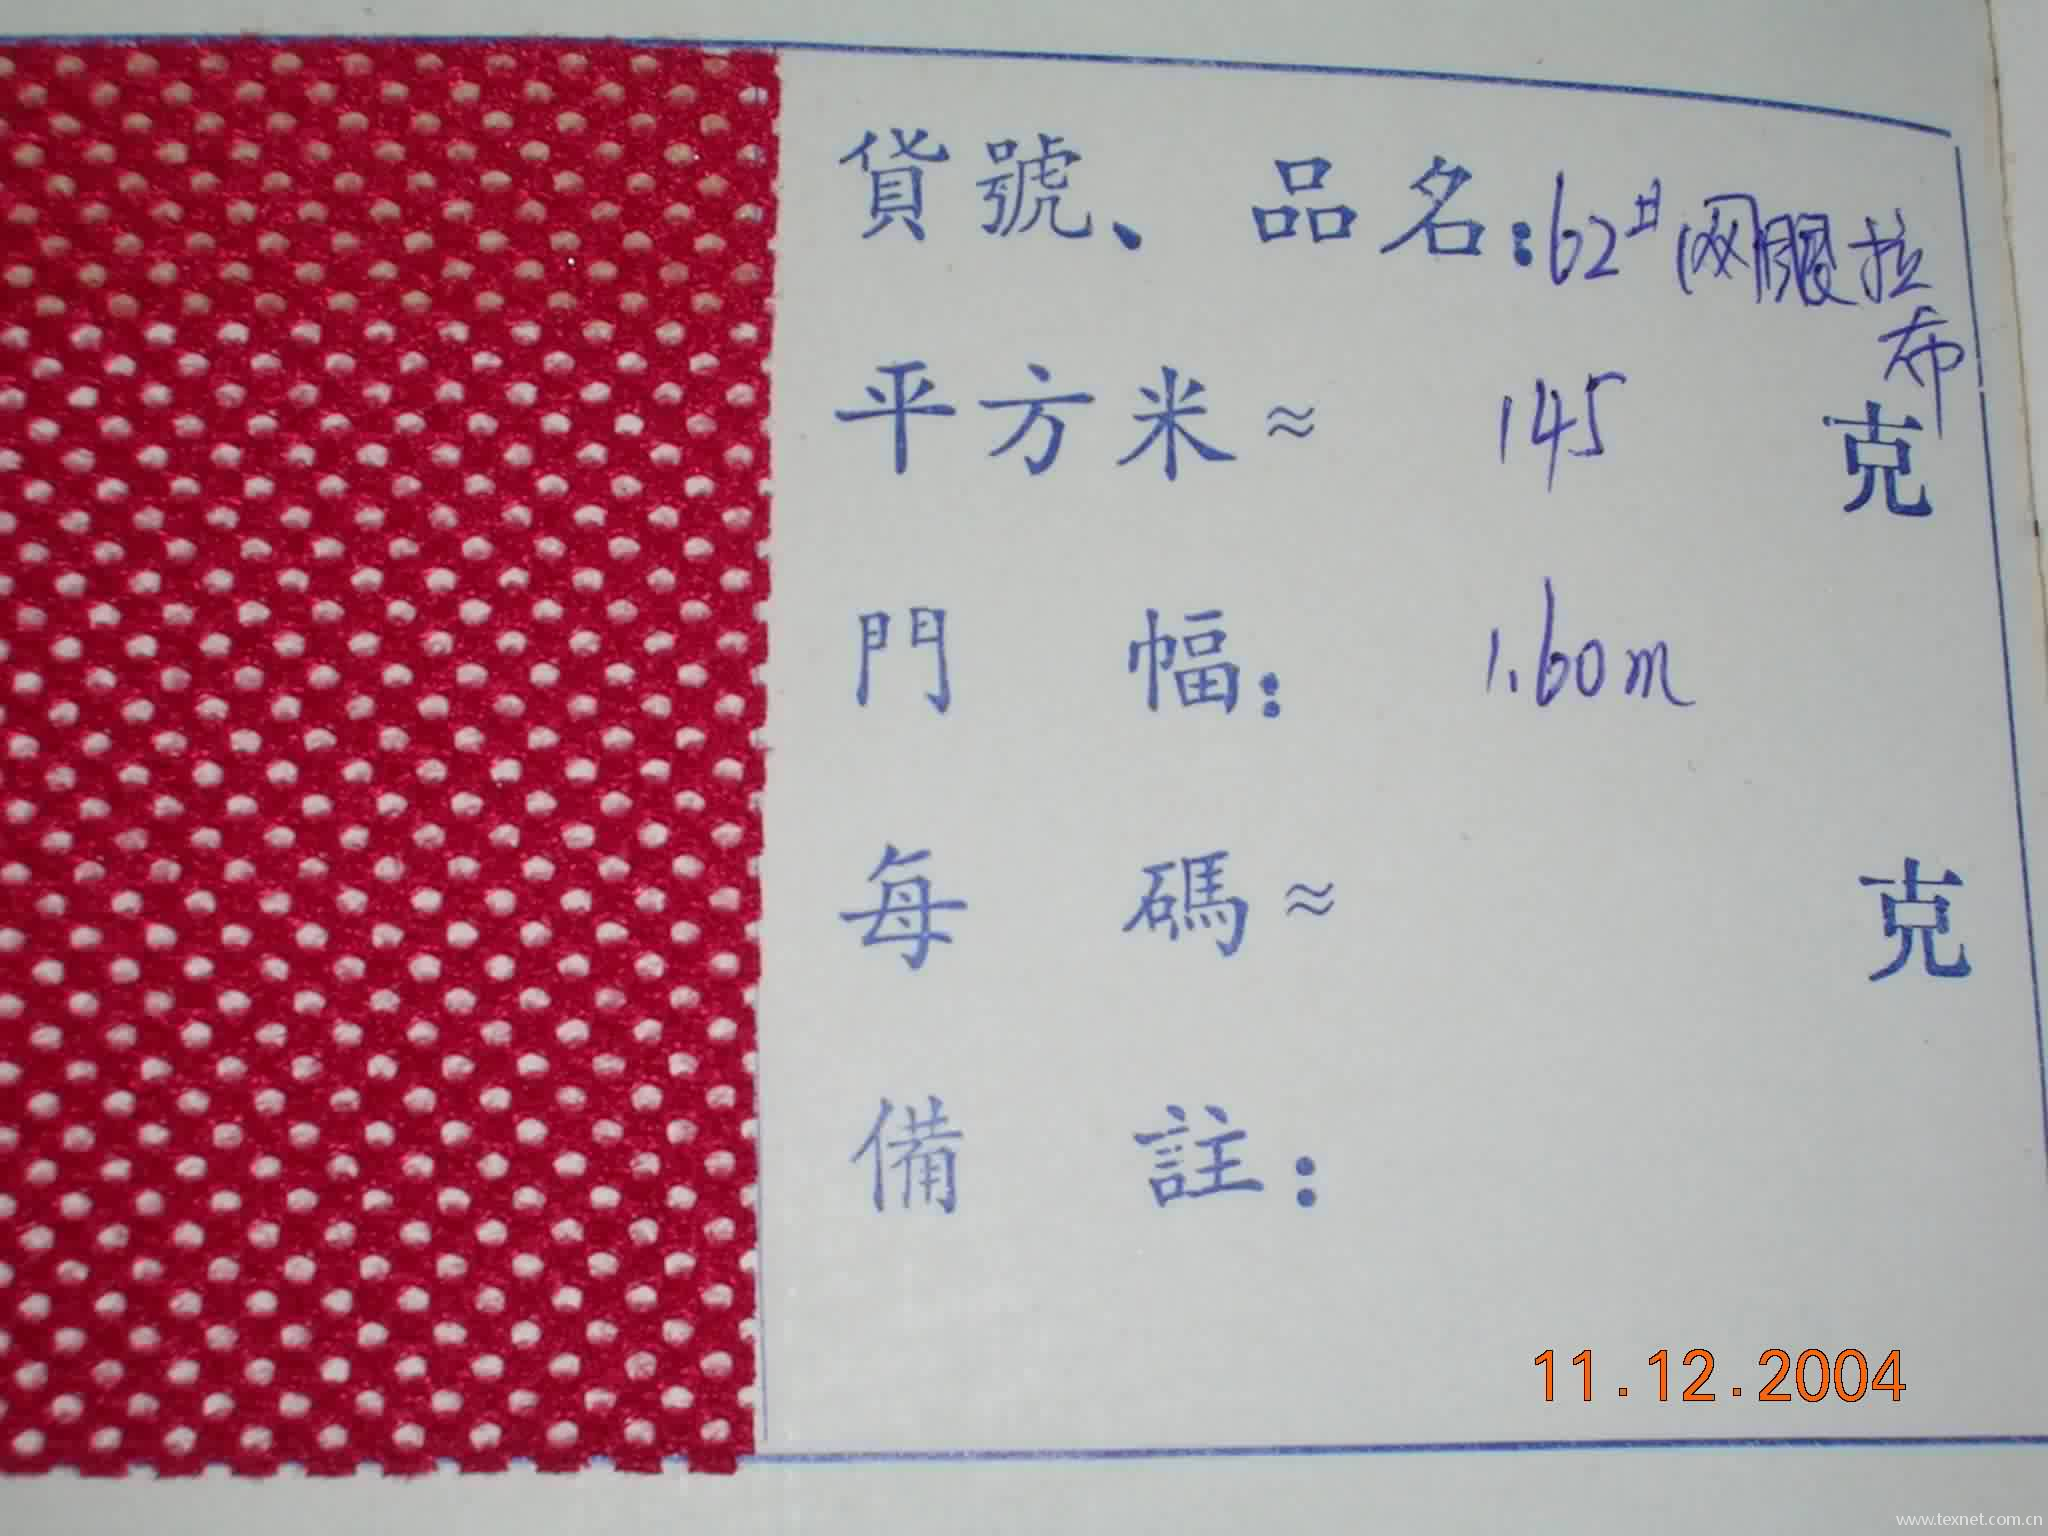 貨號、品名:62# 网眼拉
布
平方米≈ 145 克
門 幅: 1.60m
每 碼≈ 克
備 註:
11.12.2004
www.texnet.com.cn